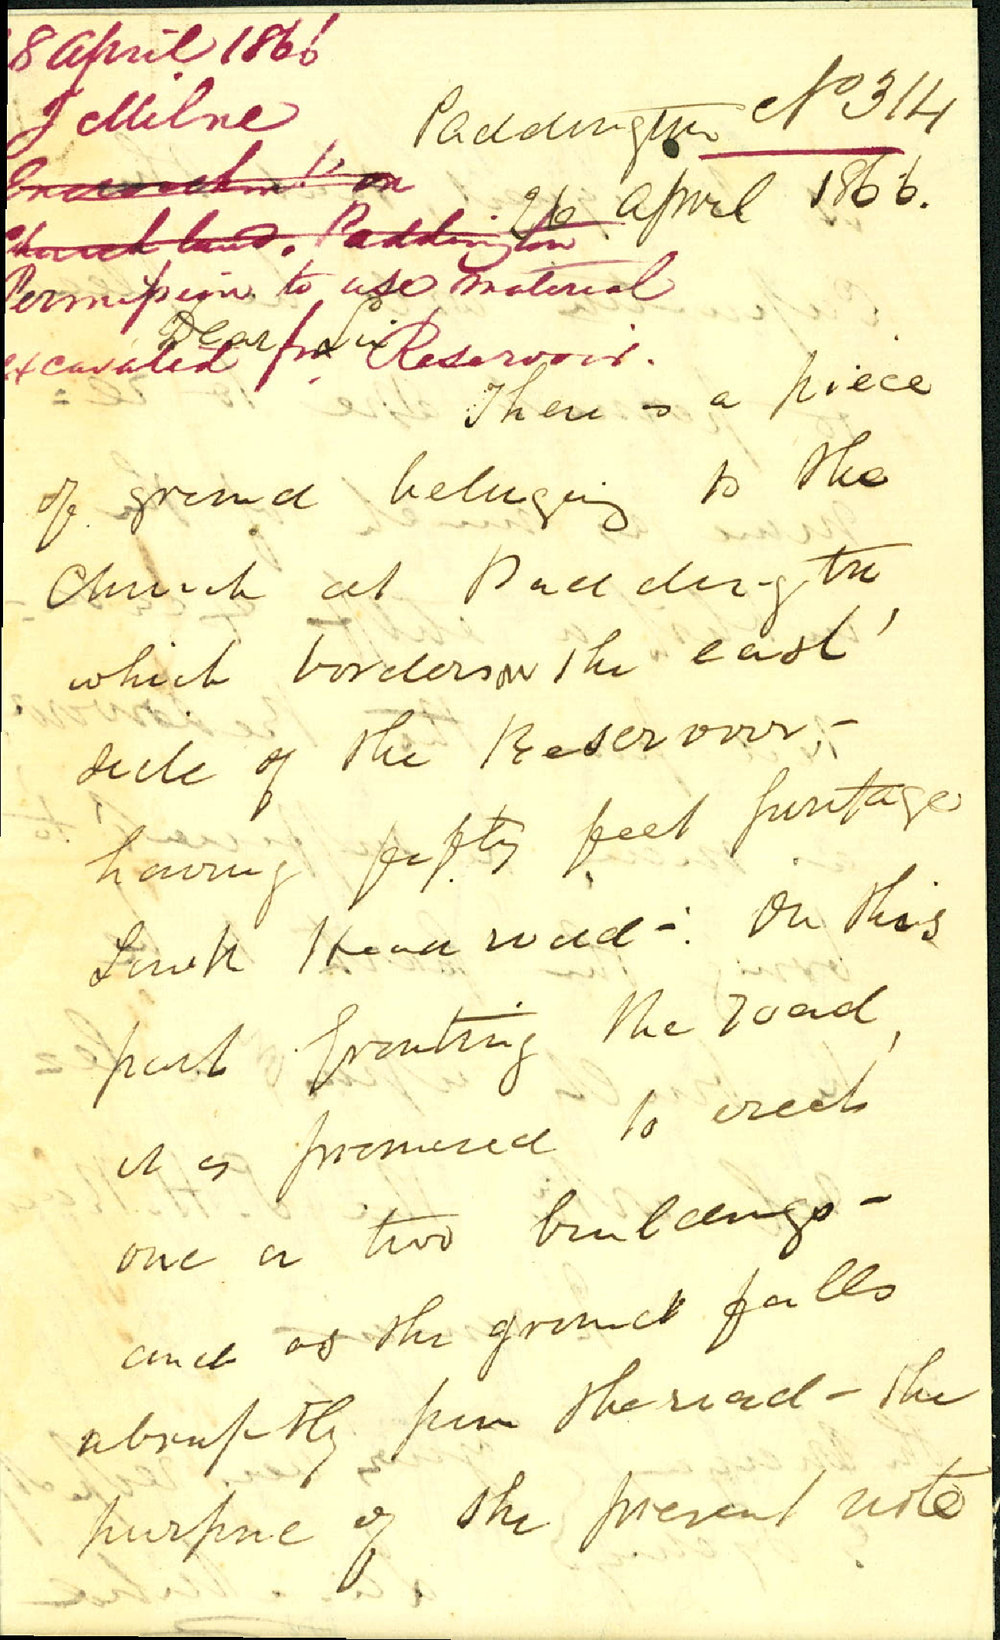 8 April 1866
J Milne
Encroachmt. on
Church land. Paddington
Permission to use material
excavated frm Reservoir.
No 314
Paddington
26 April 1866.
Dear Sir
There is a piece
of ground belonging to the
Church at Paddington,
which borders on the east
side of the Reservoir,-
having fifty feet frontage
South Head road-. On this
part fronting the road,
it is promised to erect
one or two buildings-
and as the ground falls
abruptly from the road - the
purpose of the present note